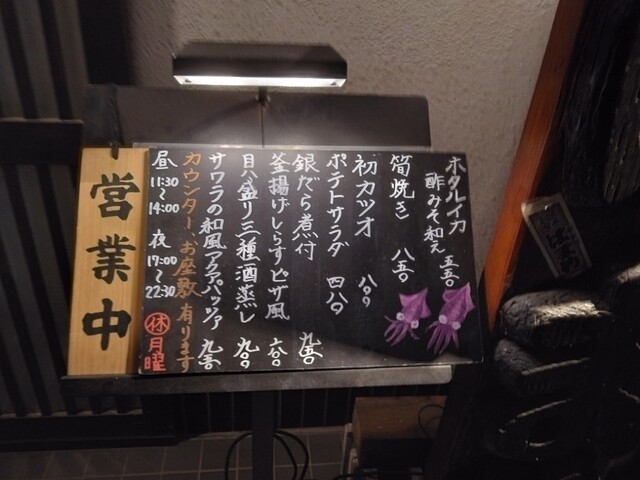 ホタルイカ
酢みそ和え 五五〇
筍焼き 八五〇
初カツオ 八〇〇
ポテトサラダ 四八〇
銀だら煮付 九五〇
釜揚げしらすピザ風 六八〇
貝八盛り三種酒蒸し 九八〇
サワラの和風アクアパッツァ 九五〇
カウンター、お座敷有ります
昼 11:30〜14:00 夜 17:00〜22:30 ㊡月曜
営業中